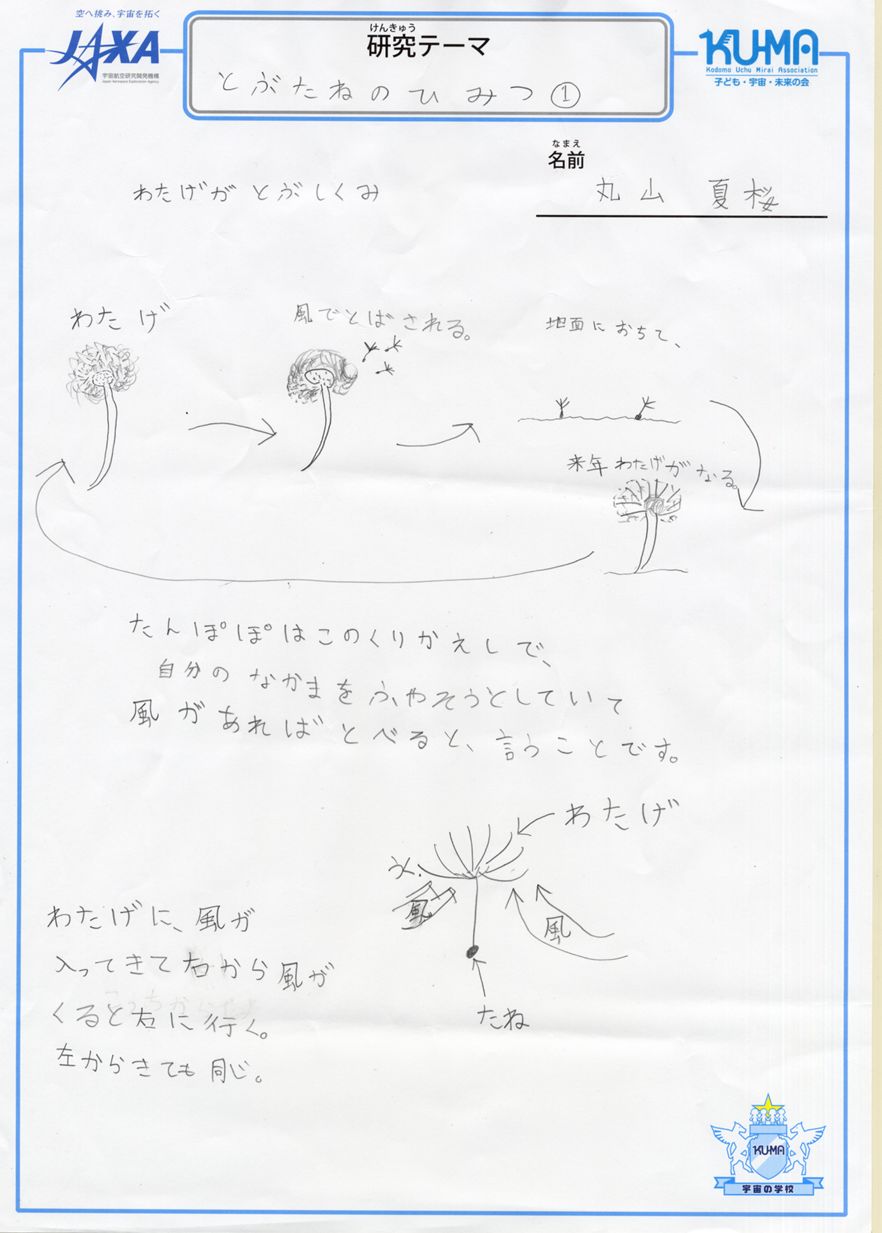 空へ挑み、宇宙を拓く
JAXA
宇宙航空研究開発機構
Japan Aerospace Exploration Agency
けんきゅう
研究テーマ
とぶたねのひみつ①
KU-MA
Kodomo Uchu Mirai Association
子ども・宇宙・未来の会
なまえ
名前
丸山 夏桜
わたげがとぶしくみ
わたげ
風でとばされる。
地面におちて、
来年わたげがなる。
たんぽぽはこのくりかえしで、
自分のなかまをふやそうとしていて
風があればとべると、言うことです。
わたげ
風
風
たね
わたげに、風が
入ってきて右から風が
くると左に行く。
左からきても同じ。
KU-MA
宇宙の学校